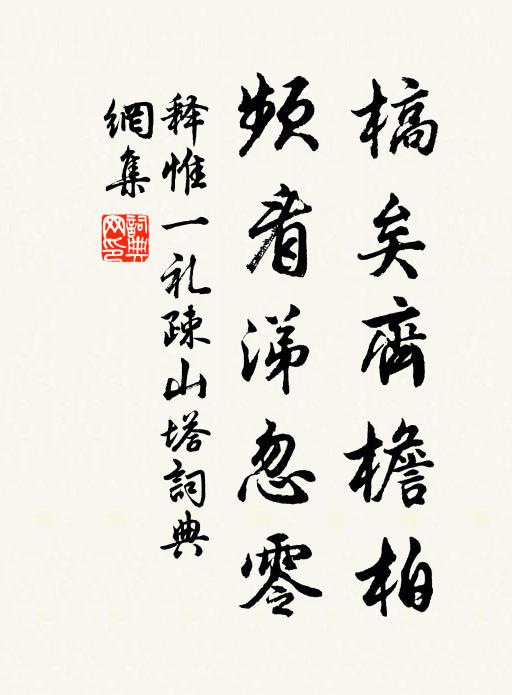 槁矣齊檐柏
頻看涕忽零
释惟一礼疎山塔詞典
網集
詞典网印